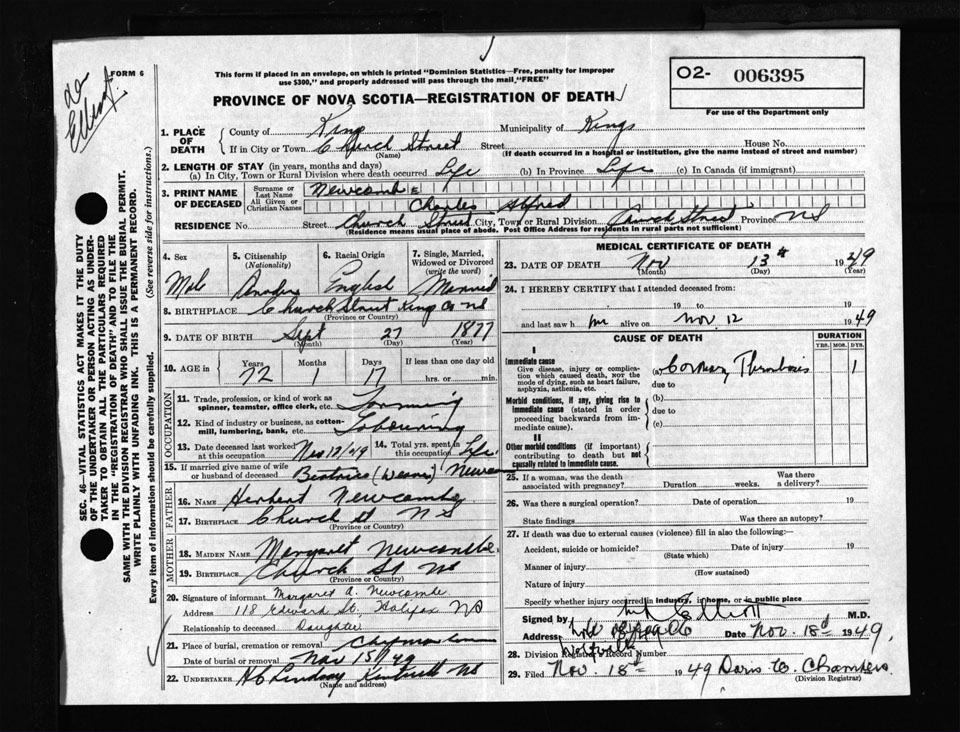 FORM 6
Elliott.
This form if placed in an envelope, on which is printed "Dominion Statistics—Free, penalty for improper
use $300," and properly addressed will pass through the mail "FREE"
PROVINCE OF NOVA SCOTIA—REGISTRATION OF DEATH
O2- 006395
For use of the Department only
1. PLACE OF DEATH County of Kings Municipality of Kings
If in City or Town Church Street Street House No.
(Name) (If death occurred in a hospital or institution, give the name instead of street and number)
2. LENGTH OF STAY (in years, months and days)
(a) In City, Town or Rural Division where death occurred Life (b) In Province Life (c) In Canada (if immigrant)
3. PRINT NAME OF DECEASED Surname or Last Name Newcombe
All Given or Christian Names Charles Alfred
RESIDENCE No. Street Church Street City, Town or Rural Division Church Street Province NS
(Residence means usual place of abode. Post Office Address for residents in rural parts not sufficient)
4. Sex 5. Citizenship (Nationality) 6. Racial Origin 7. Single, Married, Widowed or Divorced (write the word)
Male Canadian English Married
8. BIRTHPLACE Church Street Kings Co NS
(Province or Country)
9. DATE OF BIRTH Sept 27 1877
(Month) (Day) (Year)
10. AGE in Years Months Days If less than one day old
72 1 17 hrs. or min.
OCCUPATION
11. Trade, profession or kind of work as
spinner, teamster, office clerk, etc. Farming
12. Kind of industry or business, as cotton-
mill, lumbering, bank, etc. Labouring
13. Date deceased last worked at this occupation Nov 12/49 14. Total yrs. spent in this occupation Life
15. If married give name of wife
or husband of deceased Beatrice (Weaver) Newcombe
FATHER
16. NAME Herbert Newcombe
17. BIRTHPLACE Church st NS
(Province or Country)
MOTHER
18. MAIDEN NAME Margaret Newcombe
19. BIRTHPLACE Church St NS
(Province or Country)
20. Signature of informant Margaret A. Newcombe
Address 118 Edward St, Halifax NS
Relationship to deceased Daughter
21. Place of burial, cremation or removal
Date of burial or removal Nov 15/49
22. UNDERTAKER H C Lindsay Kentville NS
(Name and address)
MEDICAL CERTIFICATE OF DEATH
23. DATE OF DEATH Nov 13th 1949
(Month) (Day) (Year)
24. I HEREBY CERTIFY that I attended deceased from:
19 to 19
and last saw him alive on Nov. 12 1949
CAUSE OF DEATH DURATION
YRS. MOS. DYS.
I
Immediate cause
Give disease, injury or complica-
tion which caused death, NOT the
mode of dying, such as heart failure,
asphyxia, asthenia, etc.
(a) Coronary Thrombosis 1
due to
Morbid conditions, if any, giving rise to
immediate cause (stated in order
proceeding backwards from im-
mediate cause).
(b)
due to
(c)
II
Other morbid conditions (if important)
contributing to death but not
causally related to immediate cause.
25. If a woman, was the death
associated with pregnancy? Duration weeks. Was there a delivery?
26. Was there a surgical operation? Date of operation 19
State findings Was there an autopsy?
27. If death was due to external causes (violence) fill in also the following:
Accident, suicide or homicide? Date of injury 19
(State which)
Manner of injury
(How sustained)
Nature of injury
Specify whether injury occurred in industry, in home, or in public place
Signed by Elliott M.D.
Address Wolfville Date Nov. 18d 1949.
28. Division Registrar's Record Number
29. Filed Nov. 18d 1949 Doris E. Chambers
(Division Registrar)
SEC. 46—VITAL STATISTICS ACT MAKES IT THE DUTY
OF THE UNDERTAKER OR PERSON ACTING AS UNDER-
TAKER TO OBTAIN ALL THE PARTICULARS REQUIRED
IN THE "REGISTRATION OF DEATH" AND TO FILE THE
SAME WITH THE DIVISION REGISTRAR WHO SHALL ISSUE THE BURIAL PERMIT.
WRITE PLAINLY WITH UNFADING INK. THIS IS A PERMANENT RECORD.
Every item of information should be carefully supplied. (See reverse side for instructions.)